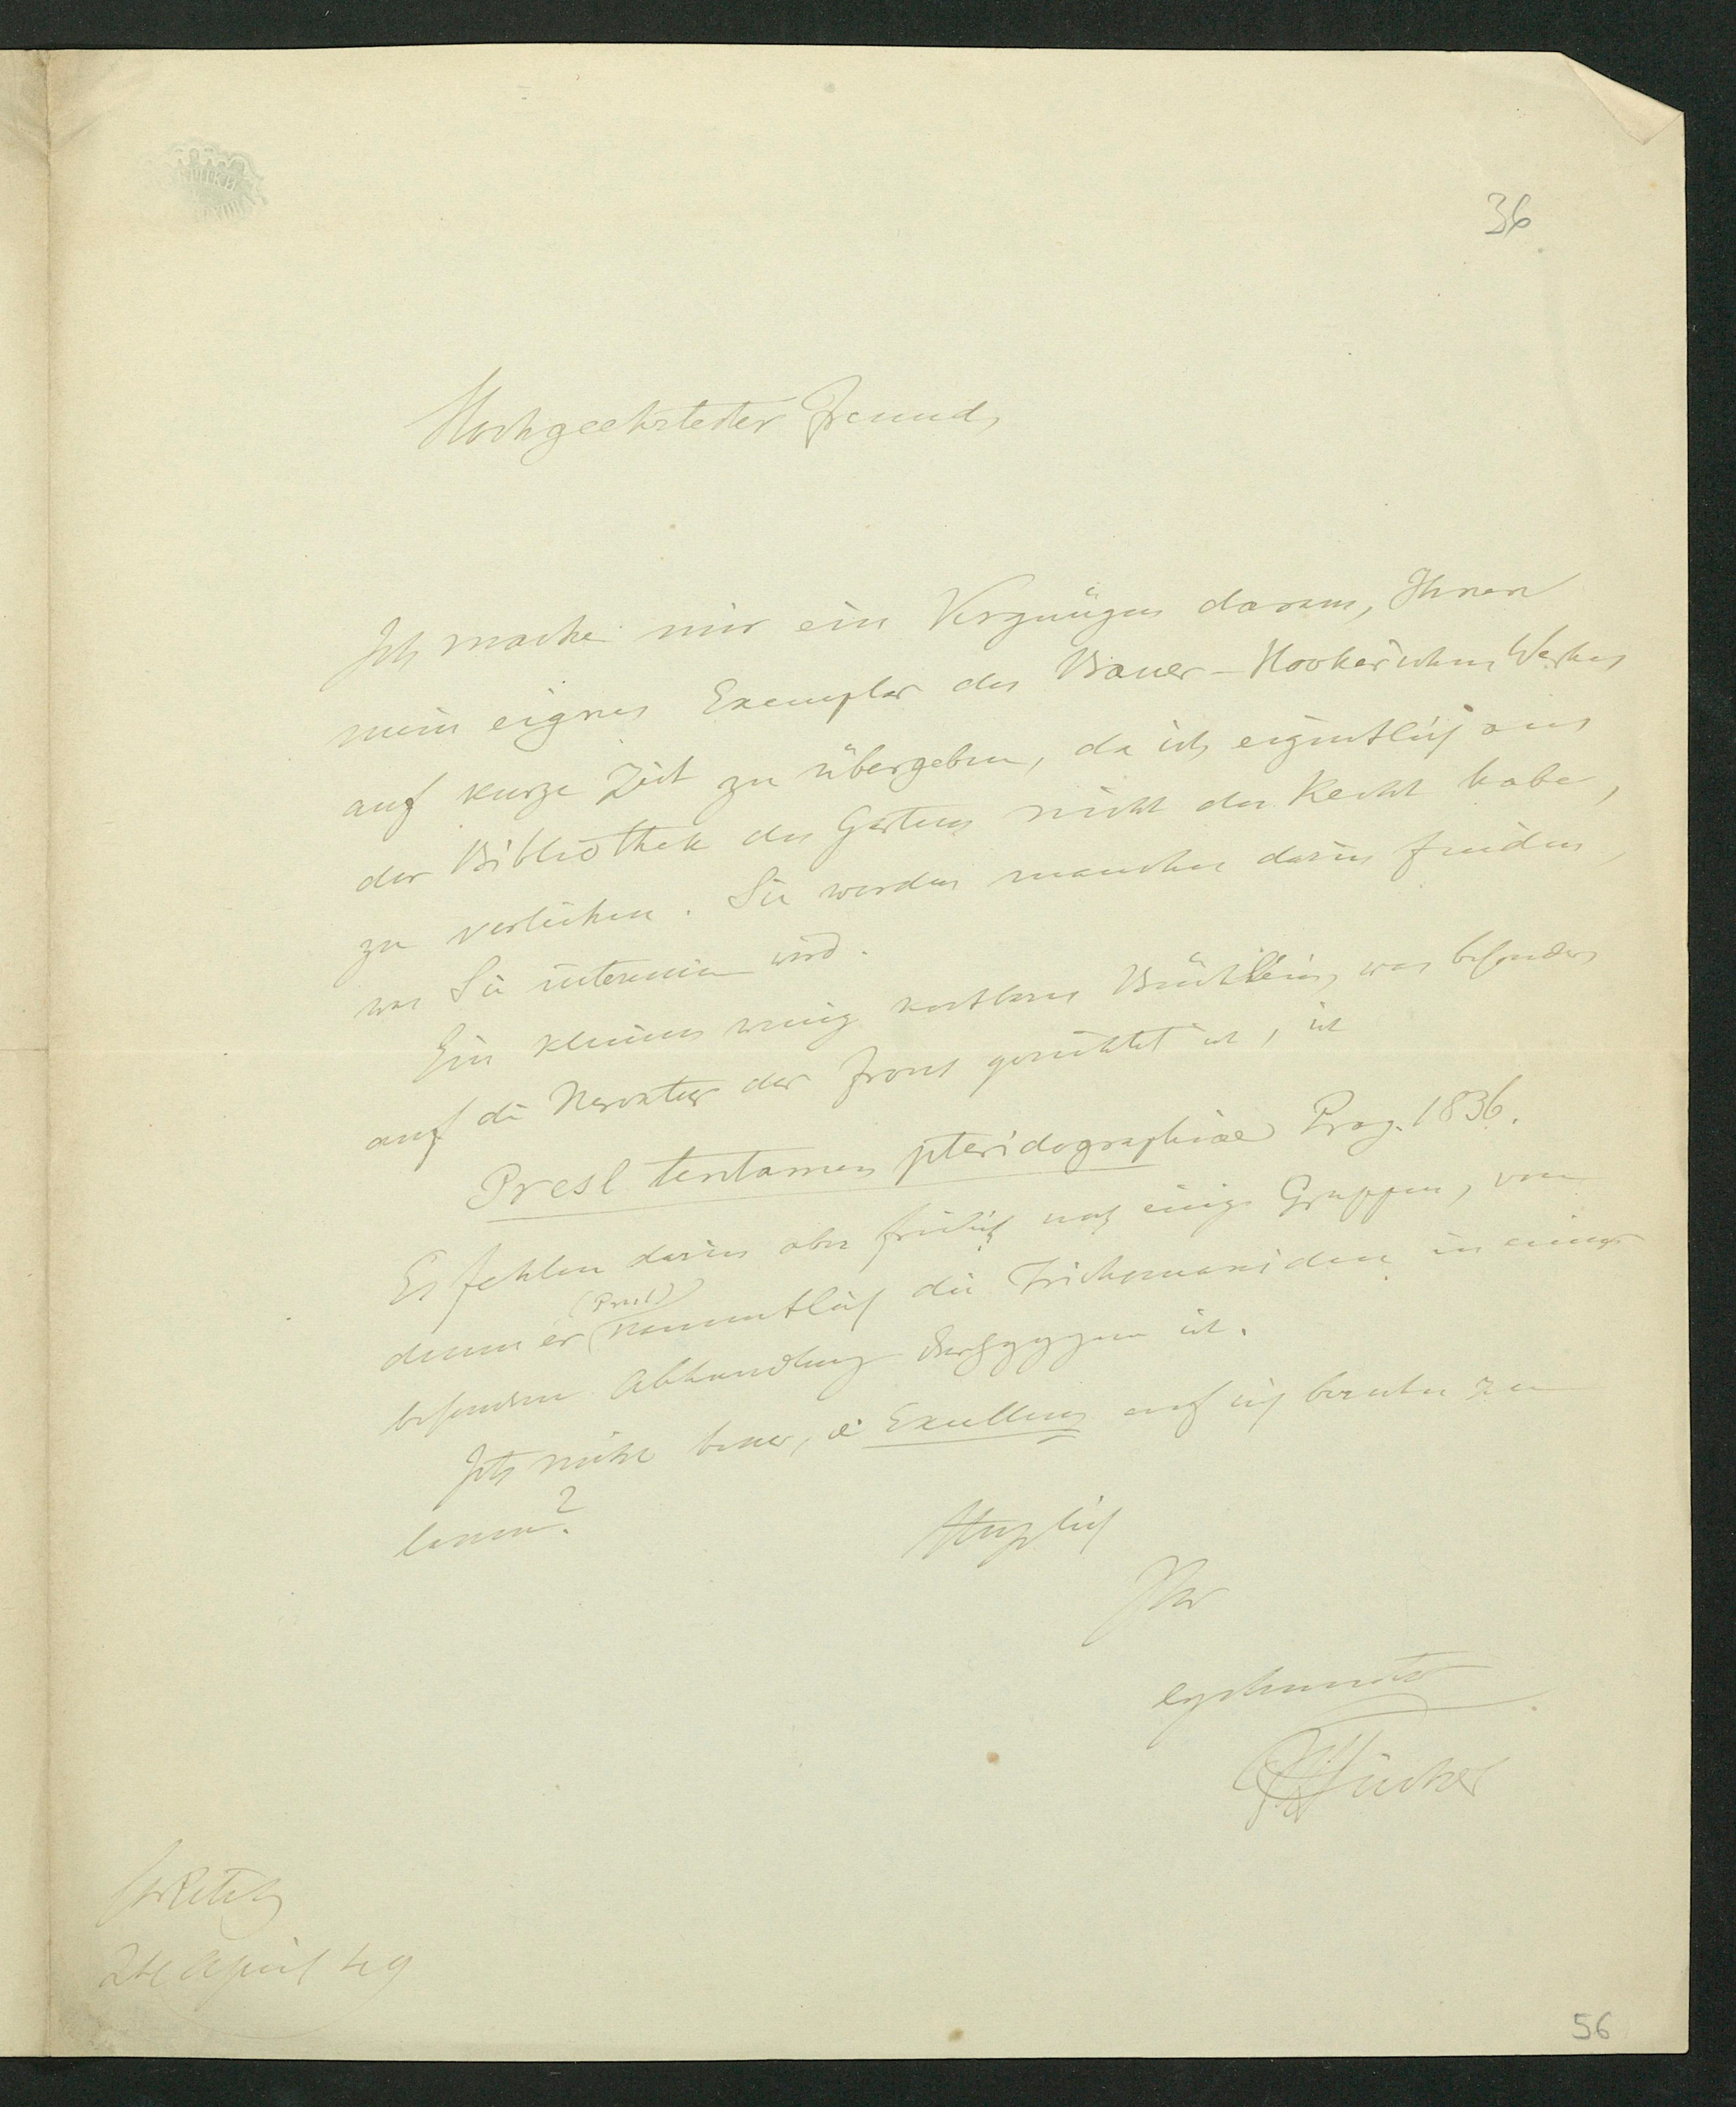 36
Hochgeehrtester Freund,
Ich mache mir ein Vergnügen daraus, Ihnen
mein eignes Exemplar des Bauer-Hookerschen Werkes
auf kurze Zeit zu übergeben, da ich eigentlich aus
der Bibliothek des Gartens nicht das Recht habe,
zu verleihen. Sie werden manches darin finden,
was Sie interessiren wird.
Ein kleines wenig kostbares Büchlein, was besonders
auf die Nervatur der Frons gerichtet ist, ist
Presl tentamen pteridographiae Prag. 1836.
Es fehlen darin aber freilich noch einige Gruppen, von
denen er (Presl) namentlich die Trichomaniden in einer
besondern Abhandlung
Ich bitte, Excellenz auf sich beruhen zu
lassen?
Herzlich
Ihr
ergebenster
24 April 49
56